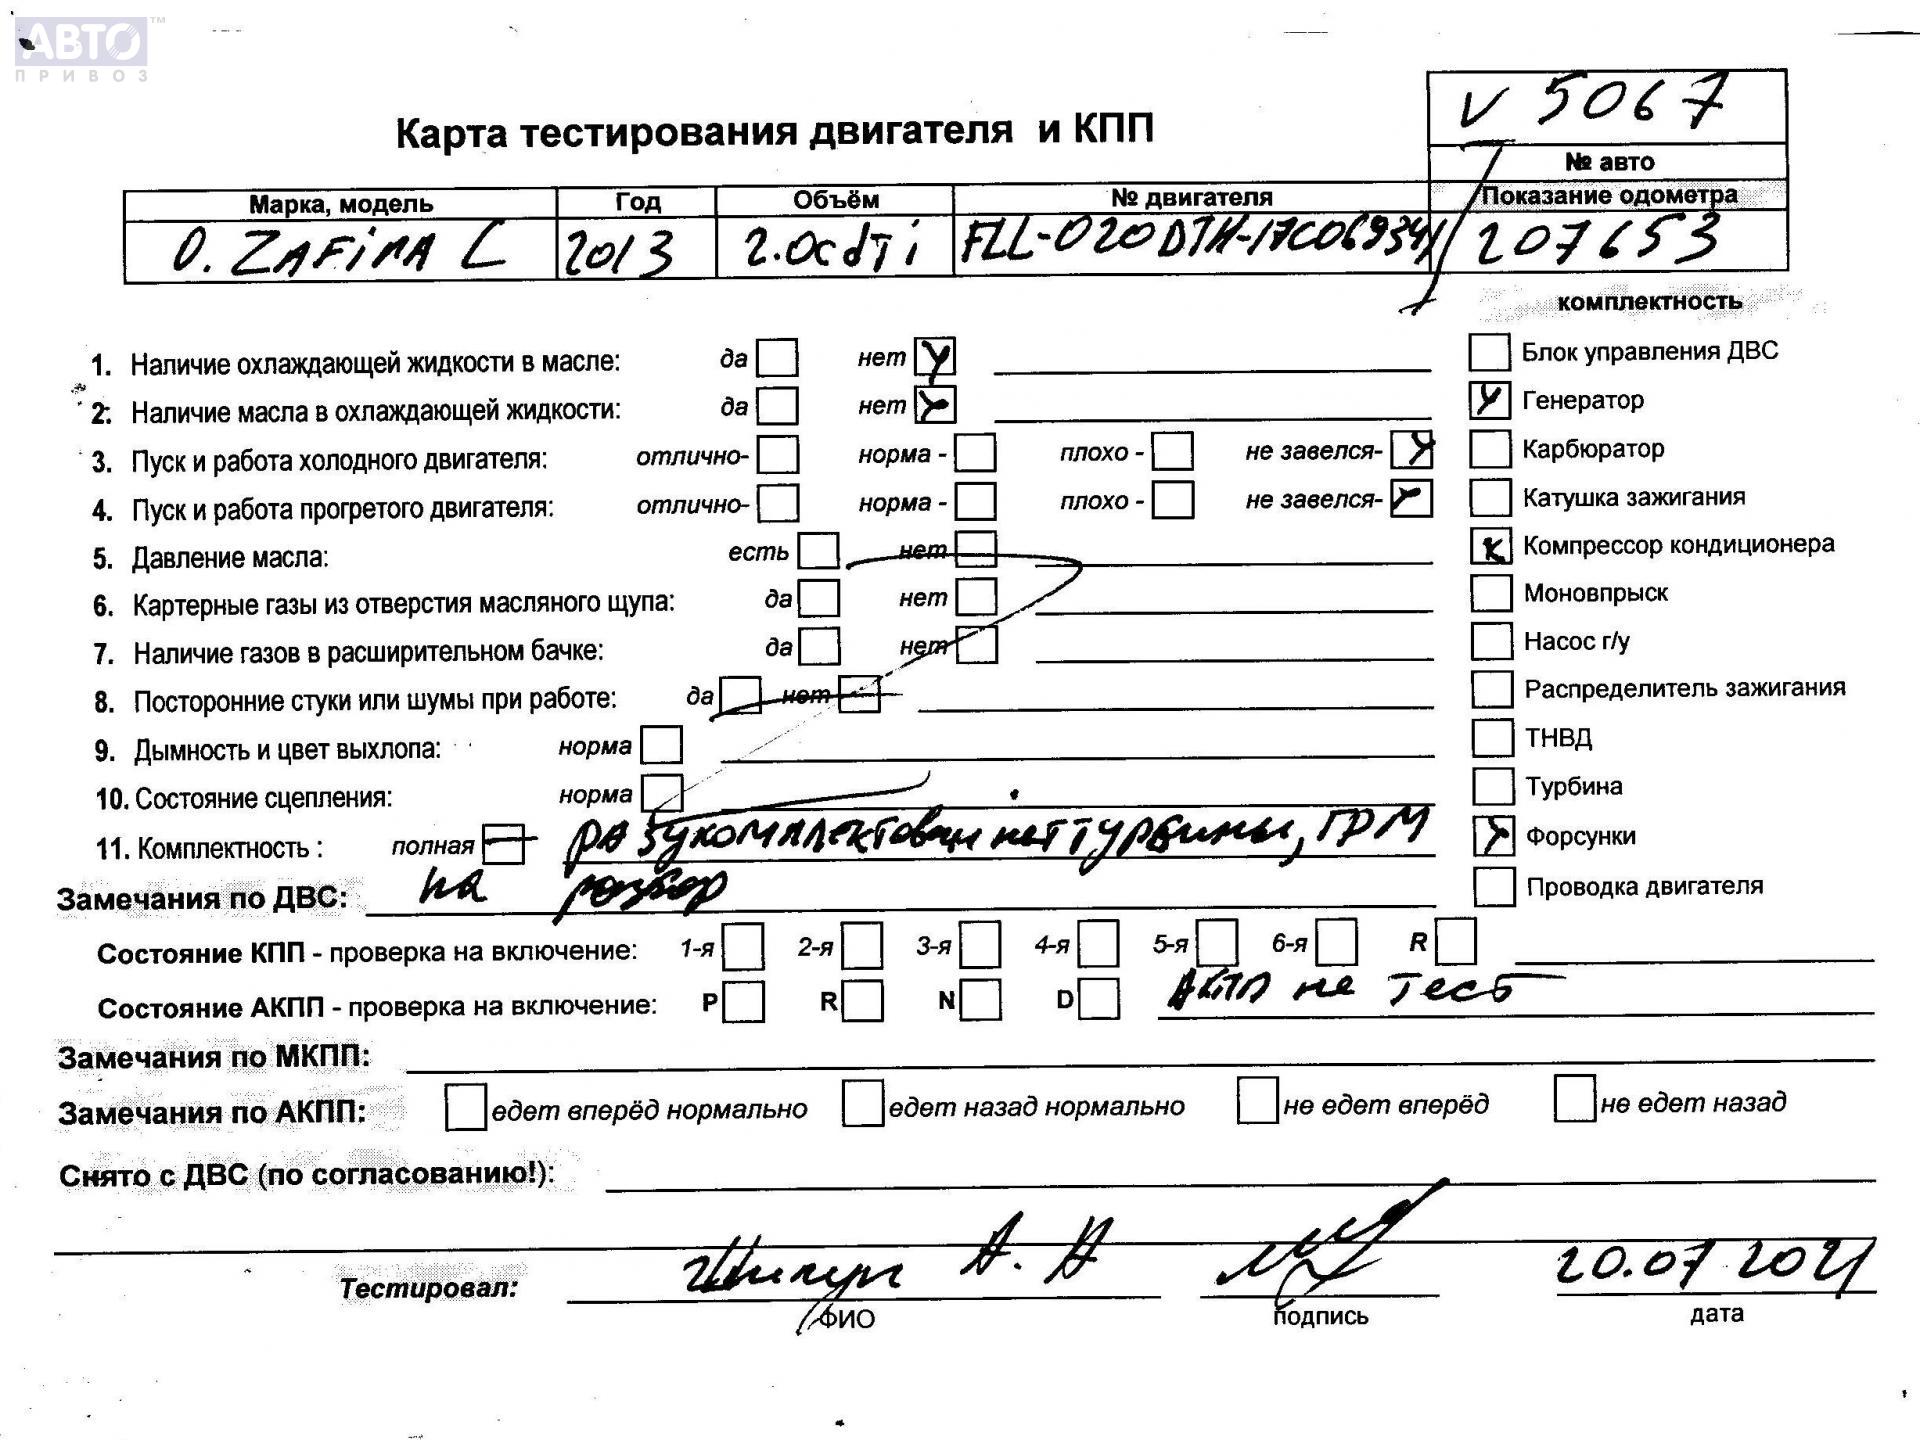 АВТО™
ПРИВОЗ
V 5067
Карта тестирования двигателя и КПП
№ авто
Марка, модель Год Объём № двигателя Показание одометра
O. ZAFIRA C 2013 2.0cdTi 207653
комплектность
1. Наличие охлаждающей жидкости в масле: да нет
Блок управления ДВС
2. Наличие масла в охлаждающей жидкости: да нет
Генератор
3. Пуск и работа холодного двигателя: отлично- норма - плохо - не завелся-
Карбюратор
4. Пуск и работа прогретого двигателя: отлично- норма - плохо - не завелся-
Катушка зажигания
5. Давление масла: есть нет
Компрессор кондиционера
6. Картерные газы из отверстия масляного щупа: да нет
Моновпрыск
7. Наличие газов в расширительном бачке: да нет
Насос г/у
8. Посторонние стуки или шумы при работе: да нет
Распределитель зажигания
9. Дымность и цвет выхлопа: норма
ТНВД
10. Состояние сцепления: норма
Турбина
11. Комплектность : полная разукомплектован нет турбины, ГРМ
Форсунки
Замечания по ДВС: на разбор
Проводка двигателя
Состояние КПП - проверка на включение: 1-я 2-я 3-я 4-я 5-я 6-я R
Состояние АКПП - проверка на включение: P R N D АКПП не тест
Замечания по МКПП:
Замечания по АКПП: едет вперёд нормально едет назад нормально не едет вперёд не едет назад
Снято с ДВС (по согласованию!):
Тестировал: А. А 20.07 2021
ФИО подпись дата